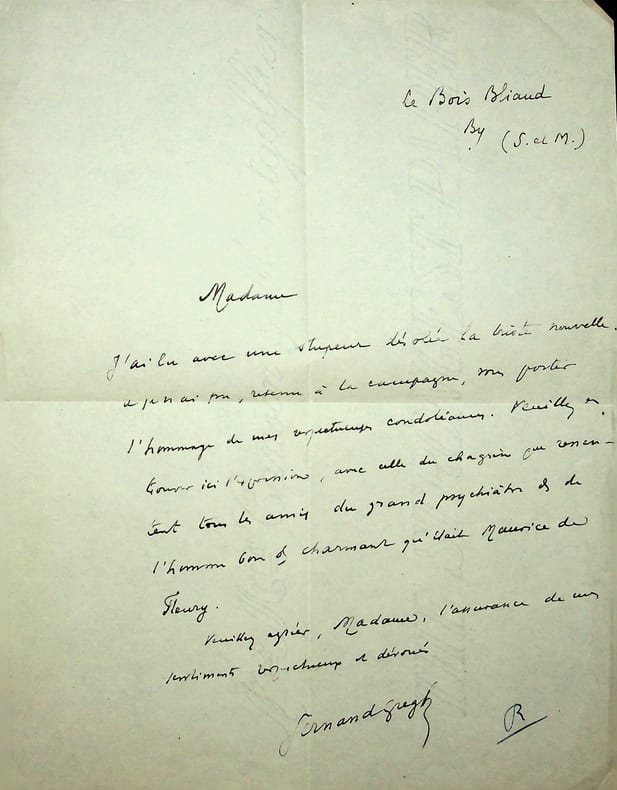 Le Bois Bliaud
By (S. et M.)
Madame
J'ai lu avec une stupeur désolée la triste nouvelle.
et je n'ai pu, retenu à la campagne, vous porter
l'hommage de mes respectueuses condoléances. Veuillez en
trouver ici l'expression, avec celle du chagrin que ressen-
tent tous les amis du grand psychiâtre et de
l'homme bon et charmant qu'était Maurice de
Fleury.
Veuillez agréer, Madame, l'assurance de mes
sentiments respectueux et dévoués
Fernand Gregh
R